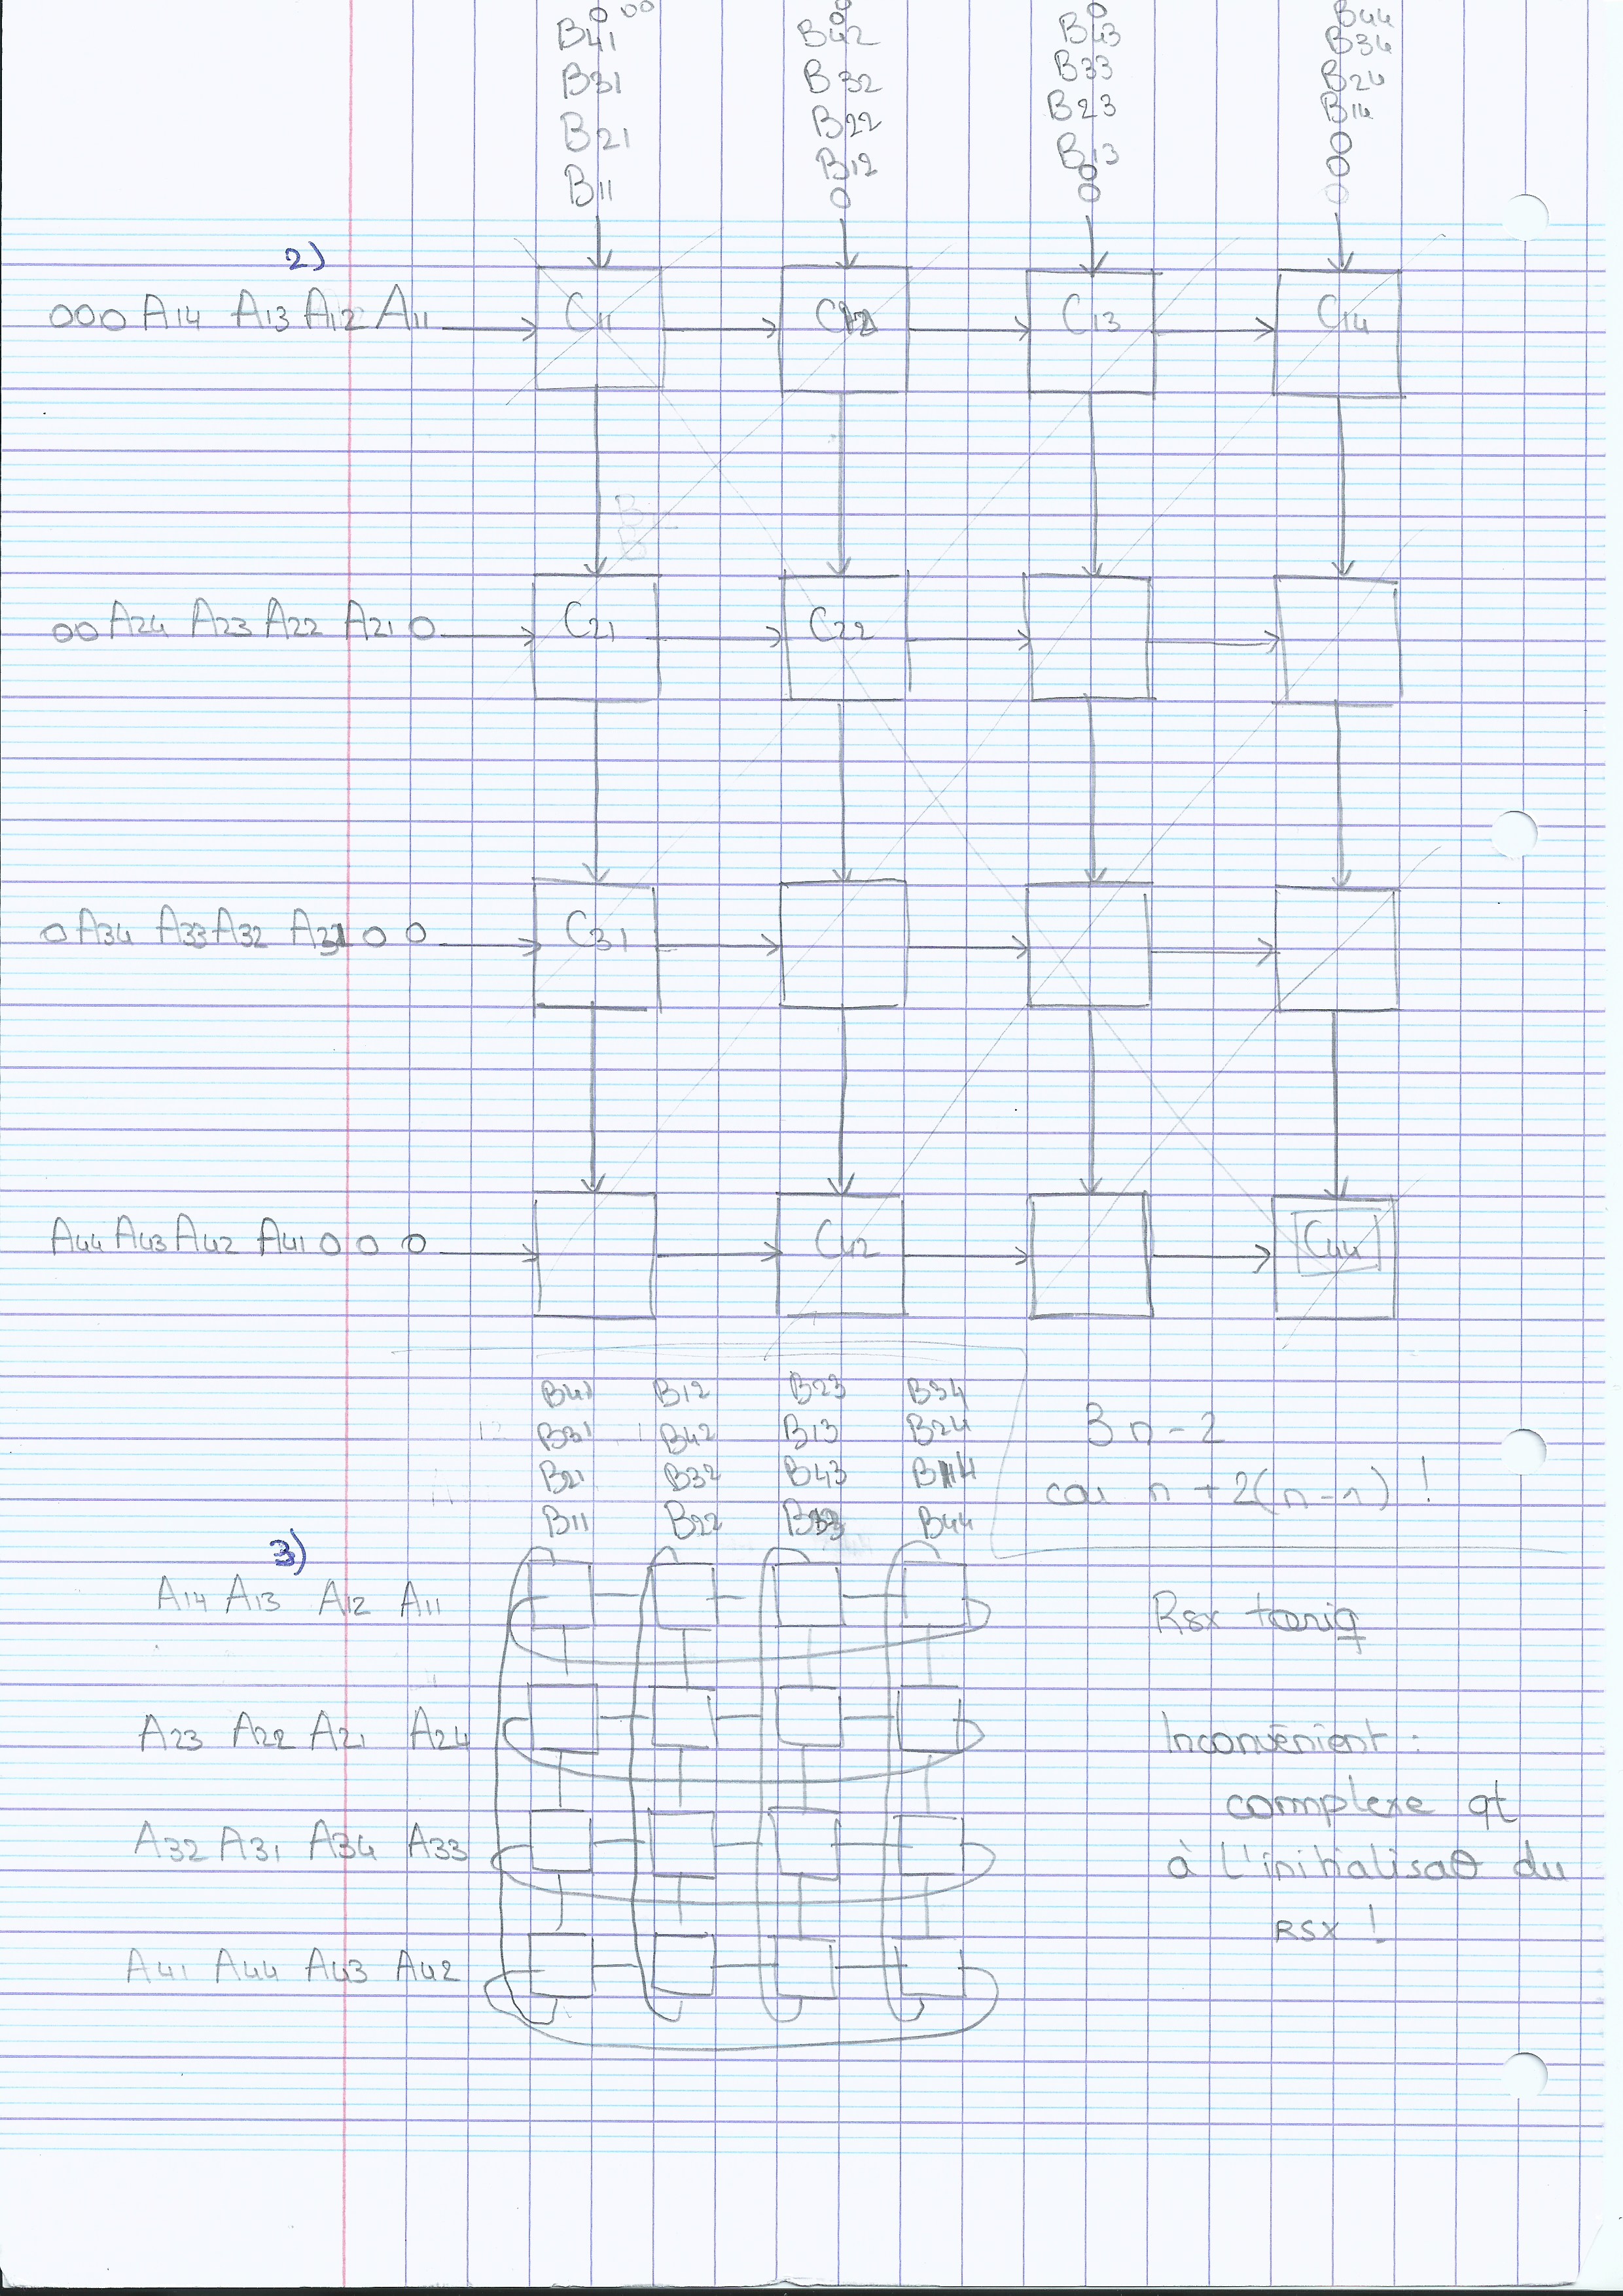 0 00 00 0 B44
B41 B42 B43 B34
B31 B32 B33 B24
B21 B22 B23 B14
B11 B12 B13 0
0 0 0
0 0
2)
000 A14 A13 A12 A11 C11 C12 C13 C14
00 A24 A23 A22 A21 0 C21 C22
0 A34 A33 A32 A31 0 0 C31
A44 A43 A42 A41 0 0 0 C42 C44
B41 B12 B23 B34
B31 B42 B13 B24
B21 B32 B43 B14
B11 B22 B33 B44
3n-2
car n + 2(n-1) !
3)
A14 A13 A12 A11
A23 A22 A21 A24
A32 A31 A34 A33
A41 A44 A43 A42
Rsx toriq
Inconvénient :
complexe qt
à l'initialisaθ du
RSX !